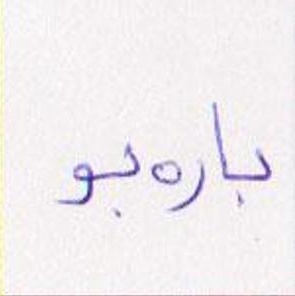 باره‌بو